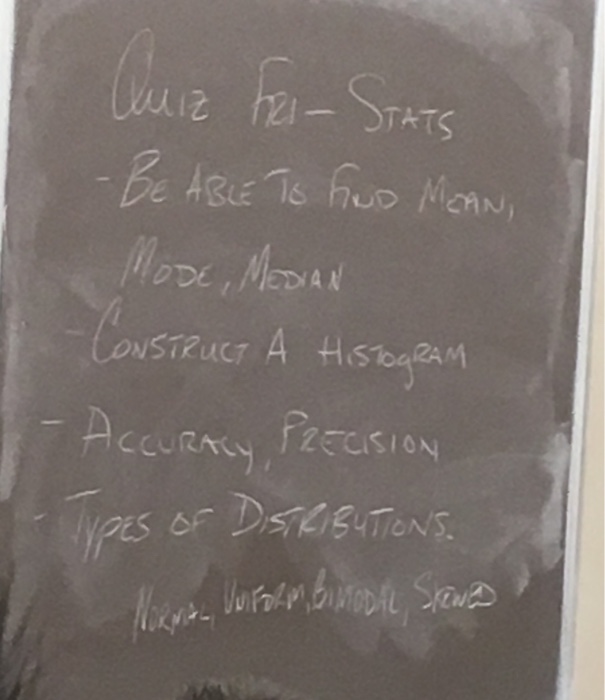 Quiz Fri - Stats
- Be Able To Find Mean,
Mode, Median
- Construct A Histogram
- Accuracy, Precision
- Types of Distributions.
Normal, Uniform, Bimodal, Skewed